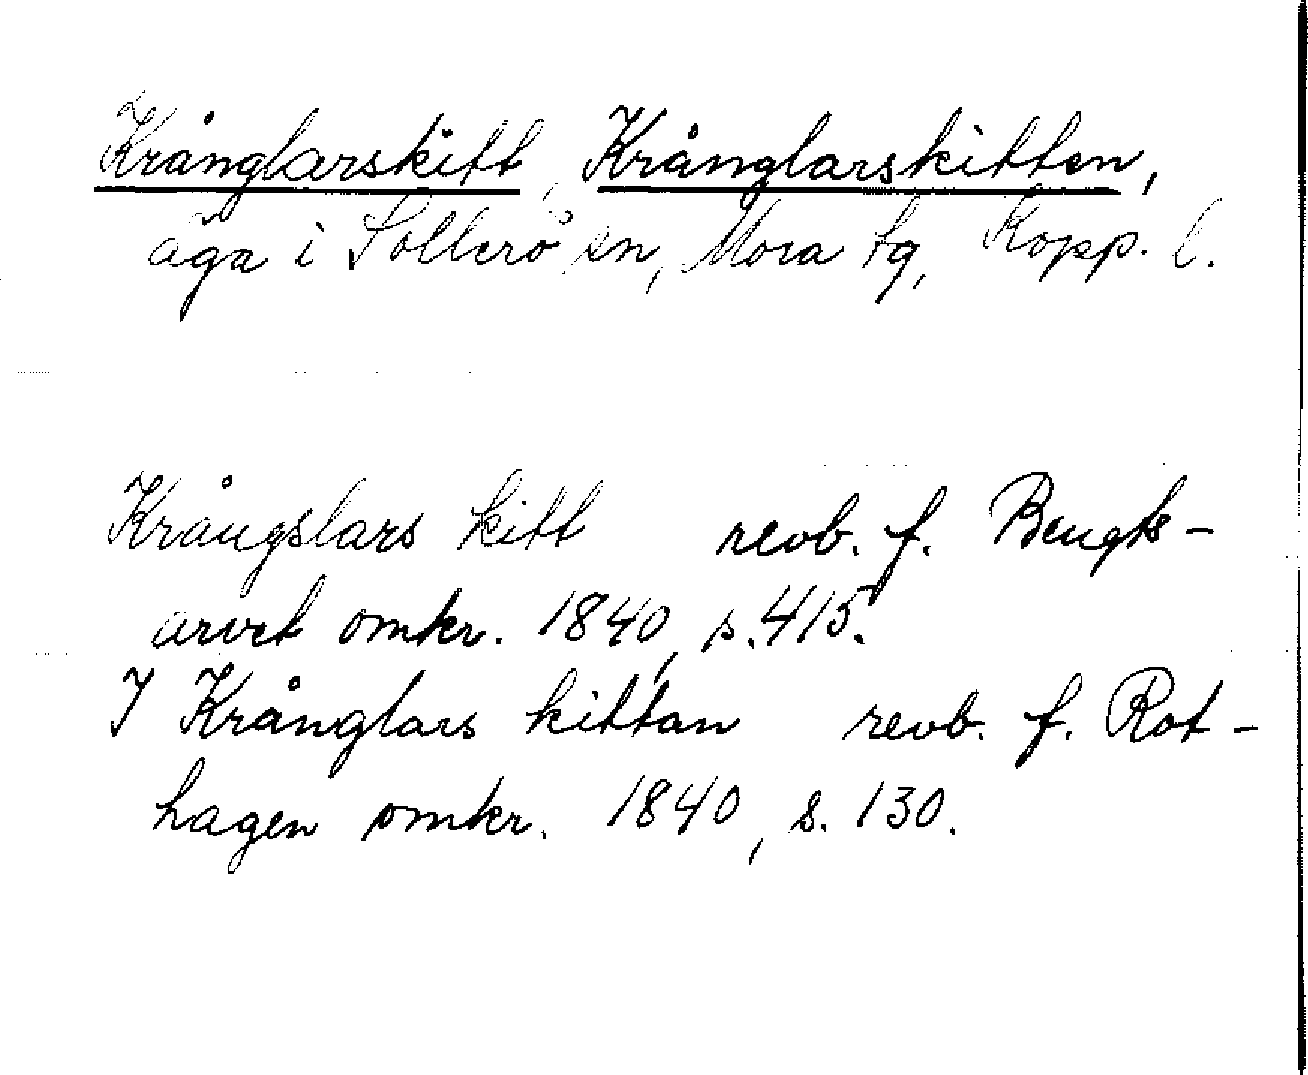 Krånglarskitt, Krånglarskitten,
äga i Sollerö sn, Mora tg, Kopp. l.
Krångslars kitt revb. f. Bengts-
arvet omkr. 1840, s. 415.
I Krånglars kittan revb. f. Rot-
hagen omkr. 1840, s. 130.